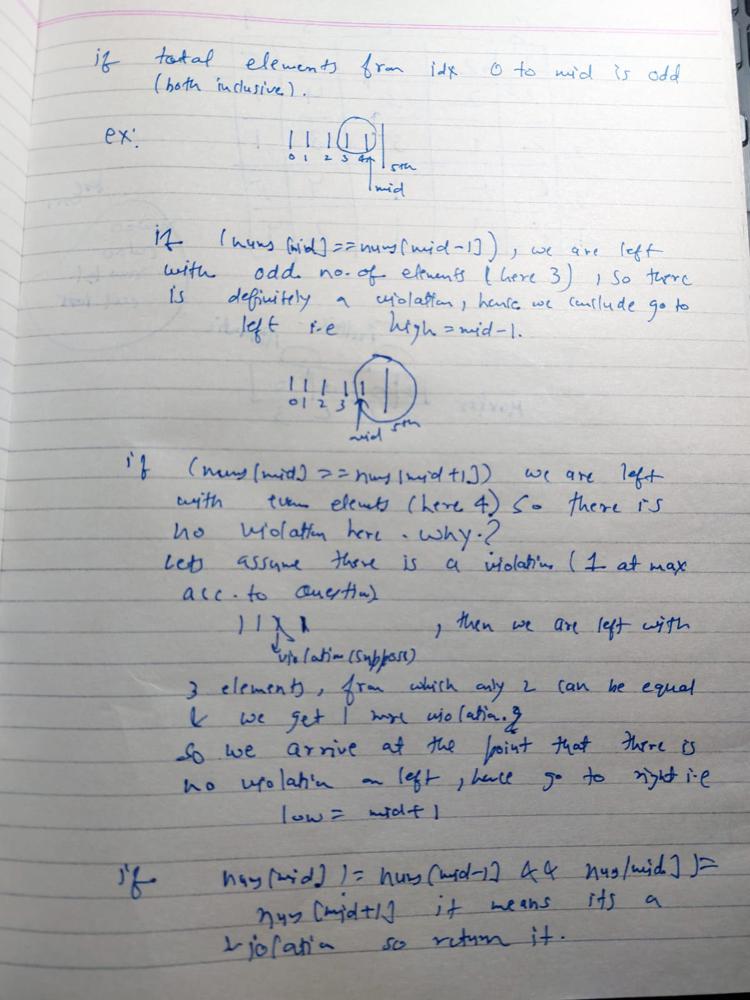 if total elements from idx 0 to mid is odd
(both inclusive).
ex:
0 1 2 3 4
5th
mid
if (nums[mid]==nums[mid-1]), we are left
with odd no. of elements (here 3), so there
is definitely a violation, hence we conclude go to
left i.e high=mid-1.
0 1 2 3
mid 5th
if (nums[mid]==nums[mid+1]) we are left
with even elements (here 4) so there is
no violation here. why.?
Lets assume there is a violation (1 at max
acc. to question)
, then we are left with
violation (suppose)
3 elements, from which only 2 can be equal
& we get 1 more violation.
So we arrive at the point that there is
no violation on left, hence go to right i.e
low = mid+1
if nums[mid] != nums[mid-1] && nums[mid] !=
nums[mid+1] it means its a
violation so return it.